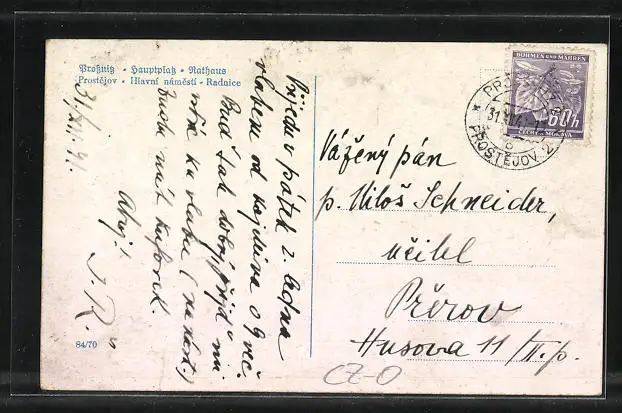 Proßnitz - Hauptplatz - Rathaus
Prostějov - Hlavní náměstí - Radnice
31/XII. 41.
Přijedu v pátek 2. ledna
vlakem od Kojetína o 9 več.
Buď tak dobrý, přijď mi
naproti k vlaku (na nádr.)
Budu mít kufírek.
Ahoj!
J. R.
84/70
BÖHMEN UND MÄHREN
60h
ČECHY A MORAVA
PROSTĚJOV 2
Vážený pán
p. Miloš Schneider,
učitel
Přerov
Husova 11/II. p.
CZ-O